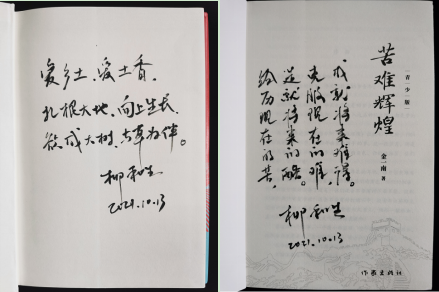 爱乡土，爱土香，
扎根大地，向上生长，
欲成大树，与草为伴。
柳和生
2021.10.13
苦难辉煌
（青少版）
金一南 著
经历现在的苦，
就将来的酷。
克服现在的难，
成就将来难得。
柳和生
2021.10.13
作家出版社